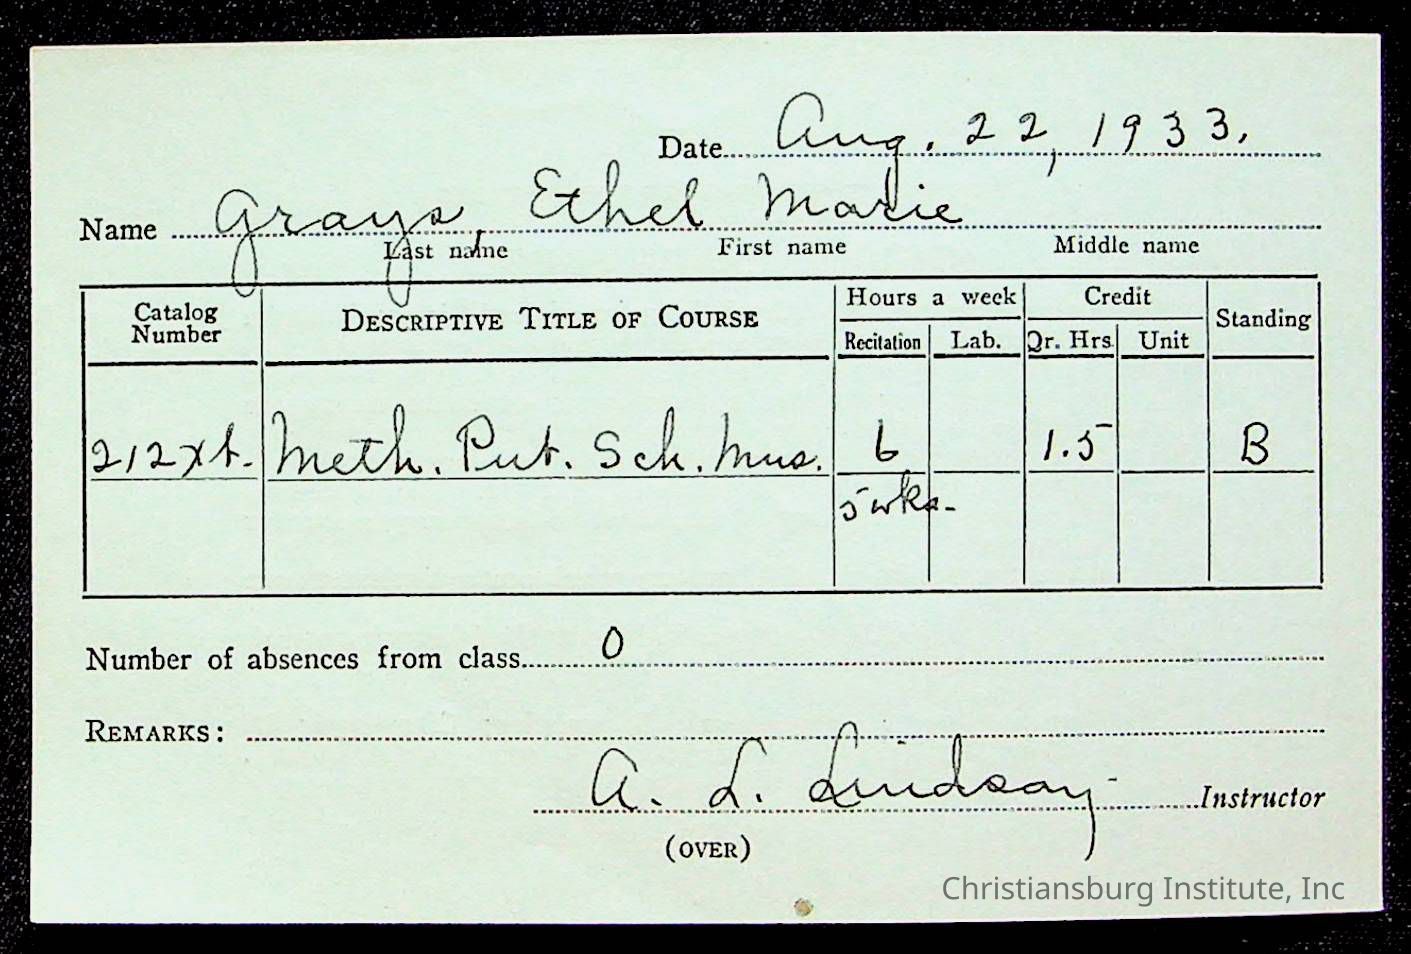 Date Aug. 22, 1933.
Name Grays, Ethel Marie
Last name First name Middle name
Catalog Number DESCRIPTIVE TITLE OF COURSE Hours a week Credit Standing
Recitation Lab. Qr. Hrs. Unit
212xt. Meth. Put. Sch. Mus. 6 1.5 B
5 wks.
Number of absences from class 0
REMARKS:
A. L. Lindsay Instructor
(OVER)
Christiansburg Institute, Inc